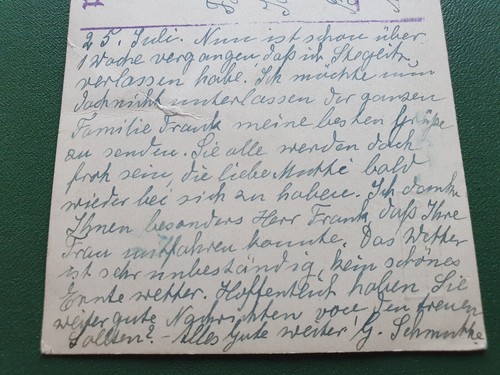 25. Juli. Nun ist schon über
1 Woche vergangen daß ich Steglitz
verlassen habe. Ich möchte nun
doch nicht unterlassen der ganzen
Familie Frank meine besten Grüße
zu senden. Sie alle werden doch
froh sein, die liebe Mutti bald
wieder bei sich zu haben. Ich danke
Ihnen besonders Herr Frank, daß Ihre
Frau mitfahren konnte. Das Wetter
ist sehr unbeständig, kein schönes
Ernte wetter. Hoffentlich haben Sie
weiter gute Nachrichten von den
- Alles Gute weiter! G. Schmutzke